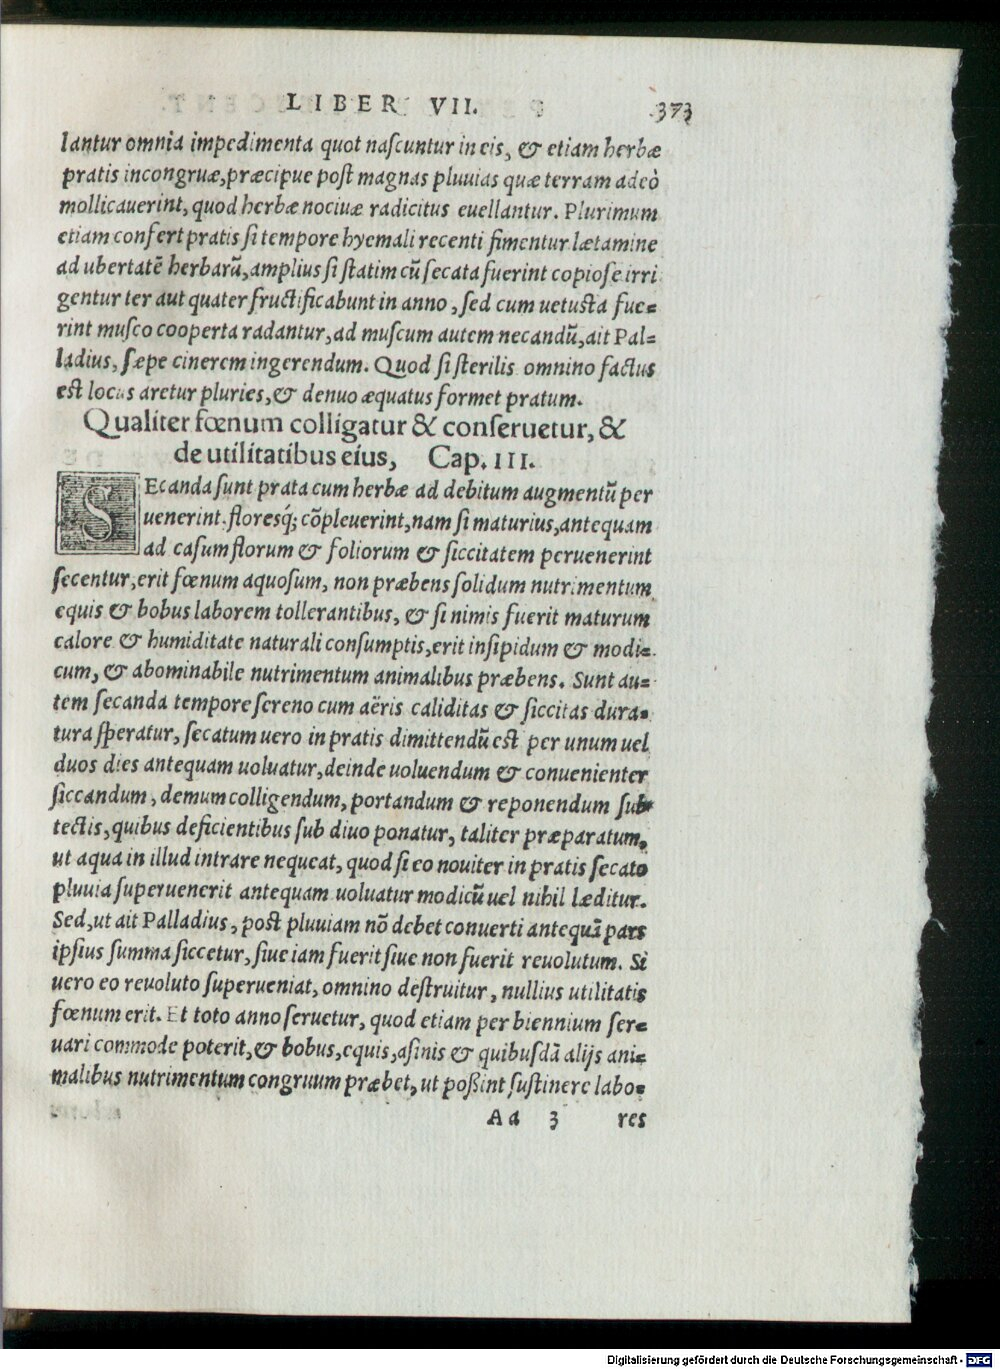 LIBER VII. 373
lantur omnia impedimenta quot naſcuntur in eis, & etiam herbæ
pratis incongruæ, præcipue poſt magnas pluuias quæ terram adeò
mollicauerint, quod herbæ nociuæ radicitus euellantur. Plurimum
etiam confert pratis ſi tempore hyemali recenti fimentur lætamine
ad ubertatē herbarū, amplius ſi ſtatim cū ſecata fuerint copioſe irri
gentur ter aut quater fructificabunt in anno, ſed cum uetuſta fue=
rint muſco cooperta radantur, ad muſcum autem necandū, ait Pal=
ladius, ſæpe cinerem ingerendum. Quod ſi ſterilis omnino factus
eſt locus aretur pluries, & denuo æquatus formet pratum.
Qualiter fœnum colligatur & conſeruetur, &
de utilitatibus eius, Cap. III.
SEcanda ſunt prata cum herbæ ad debitum augmentū per
uenerint floresq́; cōpleuerint, nam ſi maturius, antequam
ad caſum florum & foliorum & ſiccitatem peruenerint
ſecentur, erit fœnum aquoſum, non præbens ſolidum nutrimentum
equis & bobus laborem tollerantibus, & ſi nimis fuerit maturum
calore & humiditate naturali conſumptis, erit inſipidum & modi=
cum, & abominabile nutrimentum animalibus præbens. Sunt au=
tem ſecanda tempore ſereno cum aëris caliditas & ſiccitas dura=
tura ſperatur, ſecatum uero in pratis dimittendū eſt per unum uel
duos dies antequam uoluatur, deinde uoluendum & conuenienter
ſiccandum, demum colligendum, portandum & reponendum ſub
tectis, quibus deficientibus ſub diuo ponatur, taliter præparatum,
ut aqua in illud intrare nequeat, quod ſi eo nouiter in pratis ſecato
pluuia ſuperuenerit antequam uoluatur modicū uel nihil læditur.
Sed, ut ait Palladius, poſt pluuiam nō debet conuerti antequā pars
ipſius ſumma ſiccetur, ſiue iam fuerit ſiue non fuerit reuolutum. Si
uero eo reuoluto ſuperueniat, omnino deſtruitur, nullius utilitatis
fœnum erit. Et toto anno ſeruetur, quod etiam per biennium ſer=
uari commode poterit, & bobus, equis, aſinis & quibuſdā alijs ani=
malibus nutrimentum congruum præbet, ut poßint ſuſtinere labo=
Aa 3 res
Digitalisierung gefördert durch die Deutsche Forschungsgemeinschaft - DFG